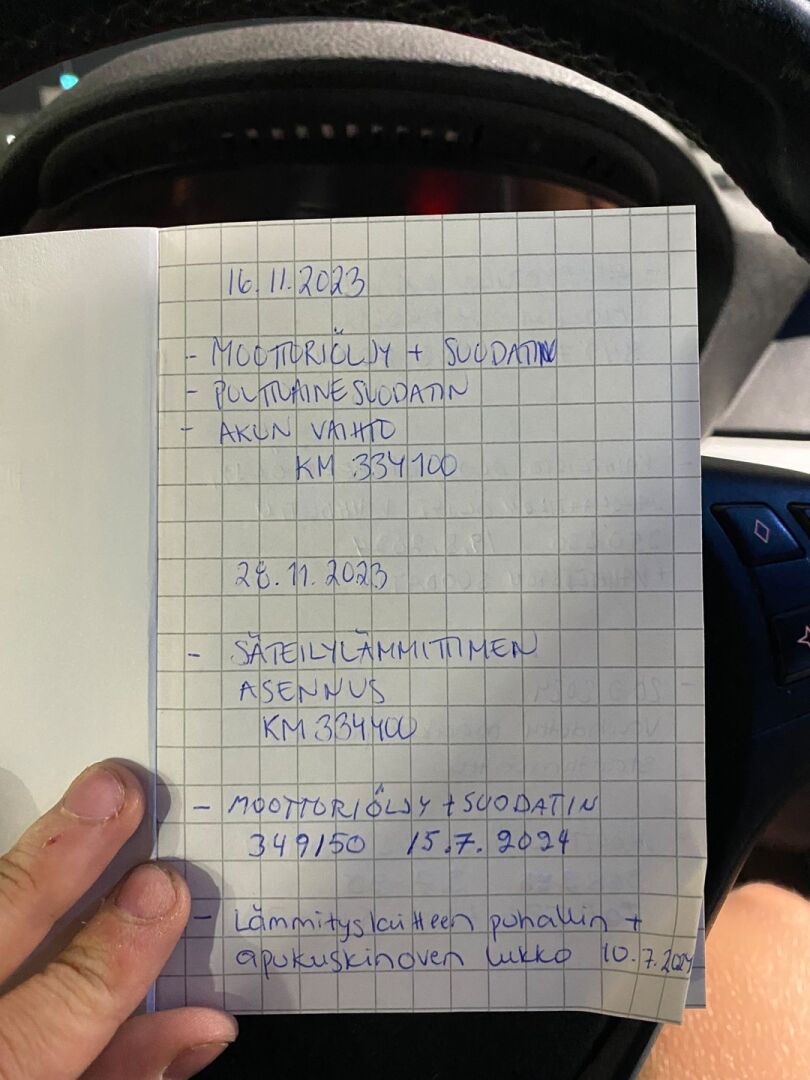 16.11.2023
- MOOTTORIÖLJY + SUODATIN
- POLTTOAINESUODATIN
- AKUN VAIHTO
KM 334100
28.11.2023
- SÄTEILYLÄMMITTIMEN
ASENNUS
KM 334400
- MOOTTORIÖLJY + SUODATIN
349150 15.7.2024
- Lämmityslaitteen puhallin +
apukuskinoven lukko 10.7.2024